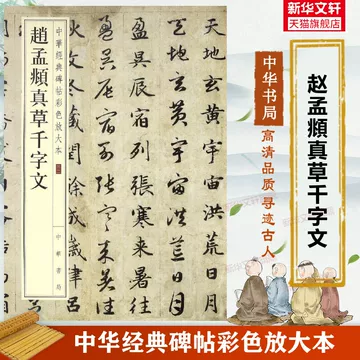 新华文轩
天猫旗舰店
中華經典碑帖彩色放大本
趙孟頫真草千字文
中華書局
天地玄黃宇宙洪荒日月
天地玄黃宇宙洪荒日月
盈昃辰宿列張寒来暑往
盈昃辰宿列張寒来暑往
中华书局
高清品质寻迹古人
赵孟頫真草千字文
中华经典碑帖彩色放大本